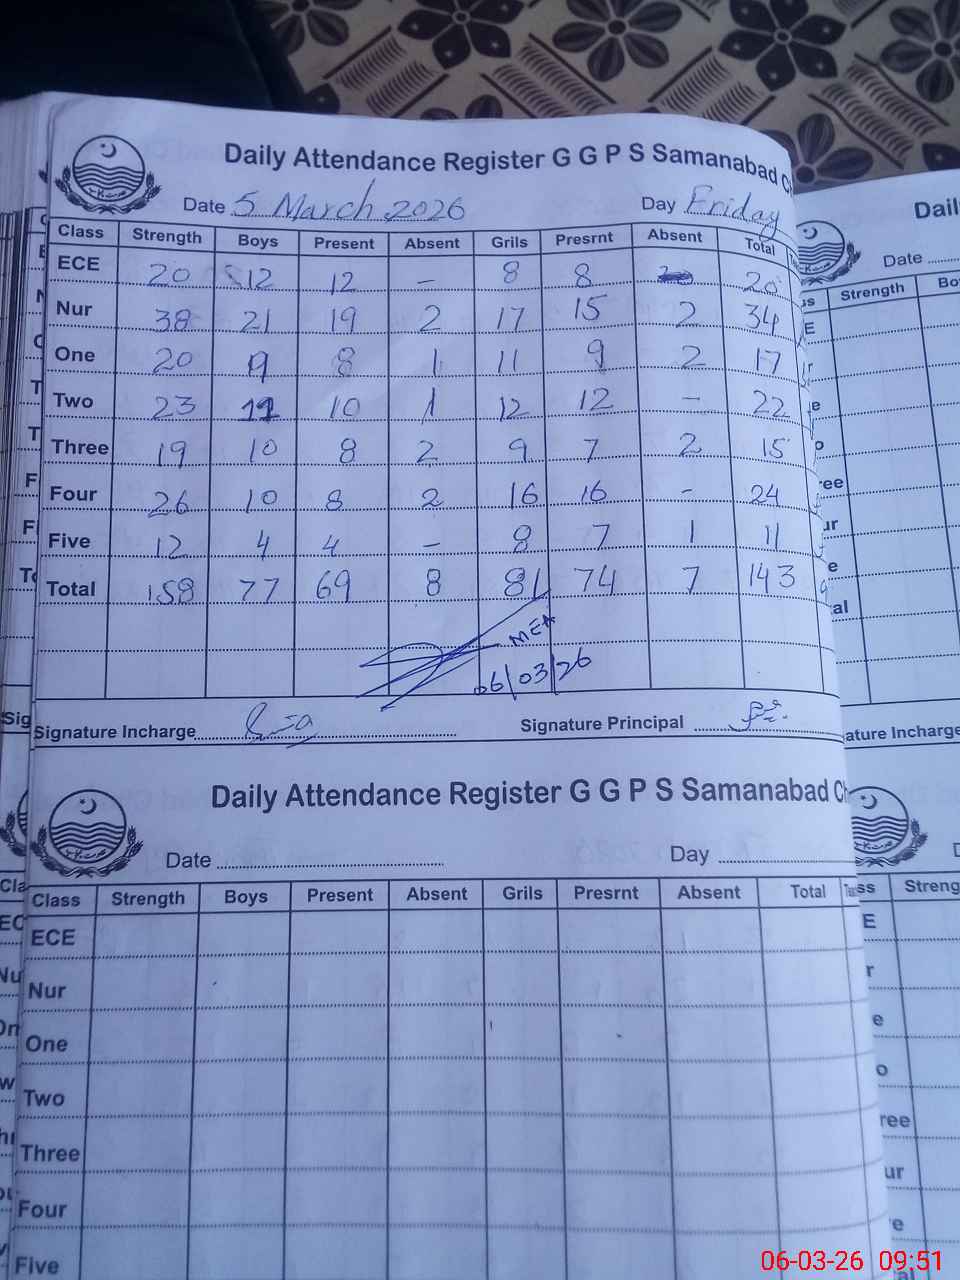 Daily Attendance Register G G P S Samanabad
Date 5 March 2026 Day Friday
Class Strength Boys Present Absent Grils Presrnt Absent Total
ECE 20 12 12 - 8 8 20
Nur 38 21 19 2 17 15 2 34
One 20 9 8 1 11 9 2 17
Two 23 11 10 1 12 12 - 22
Three 19 10 8 2 9 7 2 15
Four 26 10 8 2 16 16 - 24
Five 12 4 4 - 8 7 1 11
Total 158 77 69 8 81 74 7 143
MEA
06/03/26
Signature Incharge Signature Principal
Daily Attendance Register G G P S Samanabad
Date Day
Class Strength Boys Present Absent Grils Presrnt Absent Total
ECE
Nur
One
Two
Three
Four
Five
Date
Strength
ature Incharge
06-03-26 09:51